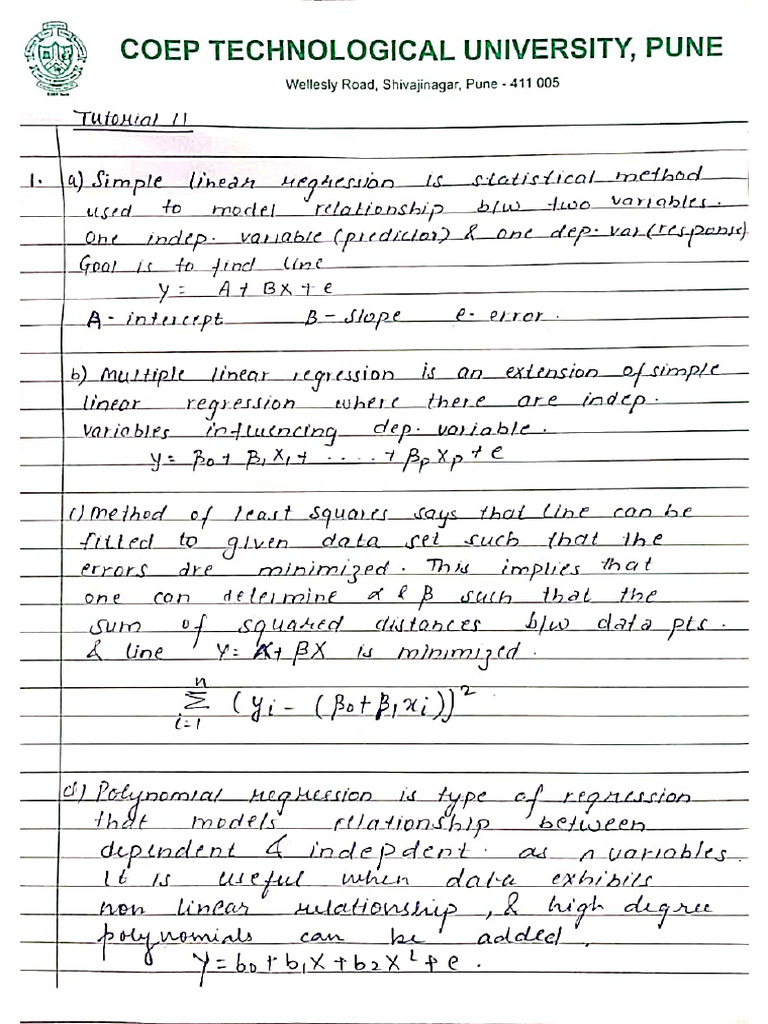 COEP TECHNOLOGICAL UNIVERSITY, PUNE
Wellesly Road, Shivajinagar, Pune - 411 005
Tutorial 11
1. a) Simple linear regression is statistical method
used to model relationship b/w two variables.
One indep. variable (predictor) & one dep. var (response)
Goal is to find line
Y = A + BX + e
A - intercept B - slope e - error.
b) Multiple linear regression is an extension of simple
linear regression where there are indep.
variables influencing dep. variable.
Y = β0 + β1X1 + ..... + βpXp + e
c) Method of least squares says that line can be
filled to given data set such that the
errors are minimized. This implies that
one can determine α & β such that the
sum of squared distances b/w data pts.
& line Y = A + βX is minimized.
n
Σ (yi - (β0 + β1xi))²
i=1
d) Polynomial regression is type of regression
that models relationship between
dependent & indepdent. as n variables.
It is useful when data exhibits
non linear relationship, & high degree
polynomials can be added.
Y = b0 + b1X + b2X² + e.